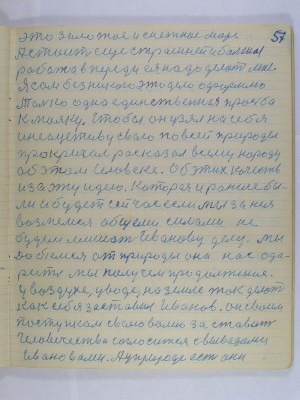 57
это золотое и снежное море
А стоит еще страшней и большая
работа впереди ея надо делать мне
Я сам без никого это дело одолею
только одна единственная просьба
к маяку, чтобы он узял на себя
инецетиву свою по всей природы
прокричал росказал всему народу
об этом человеке. Об этих качеств
и за эту идею. Которая и ранее бы-
ли и будет сейчас если мы за нея
возмемся общеми силами не
будем мешать Иванову делу. Мы
добьемся от природы она нас ода-
рить мы получем продолжения.
у воздухе, у воде, на земле так делать
как себя заставил Иванов. Он своим
поступком свою волю заставить
человечества согласится с выводами
Ивановами. А у природе есть они